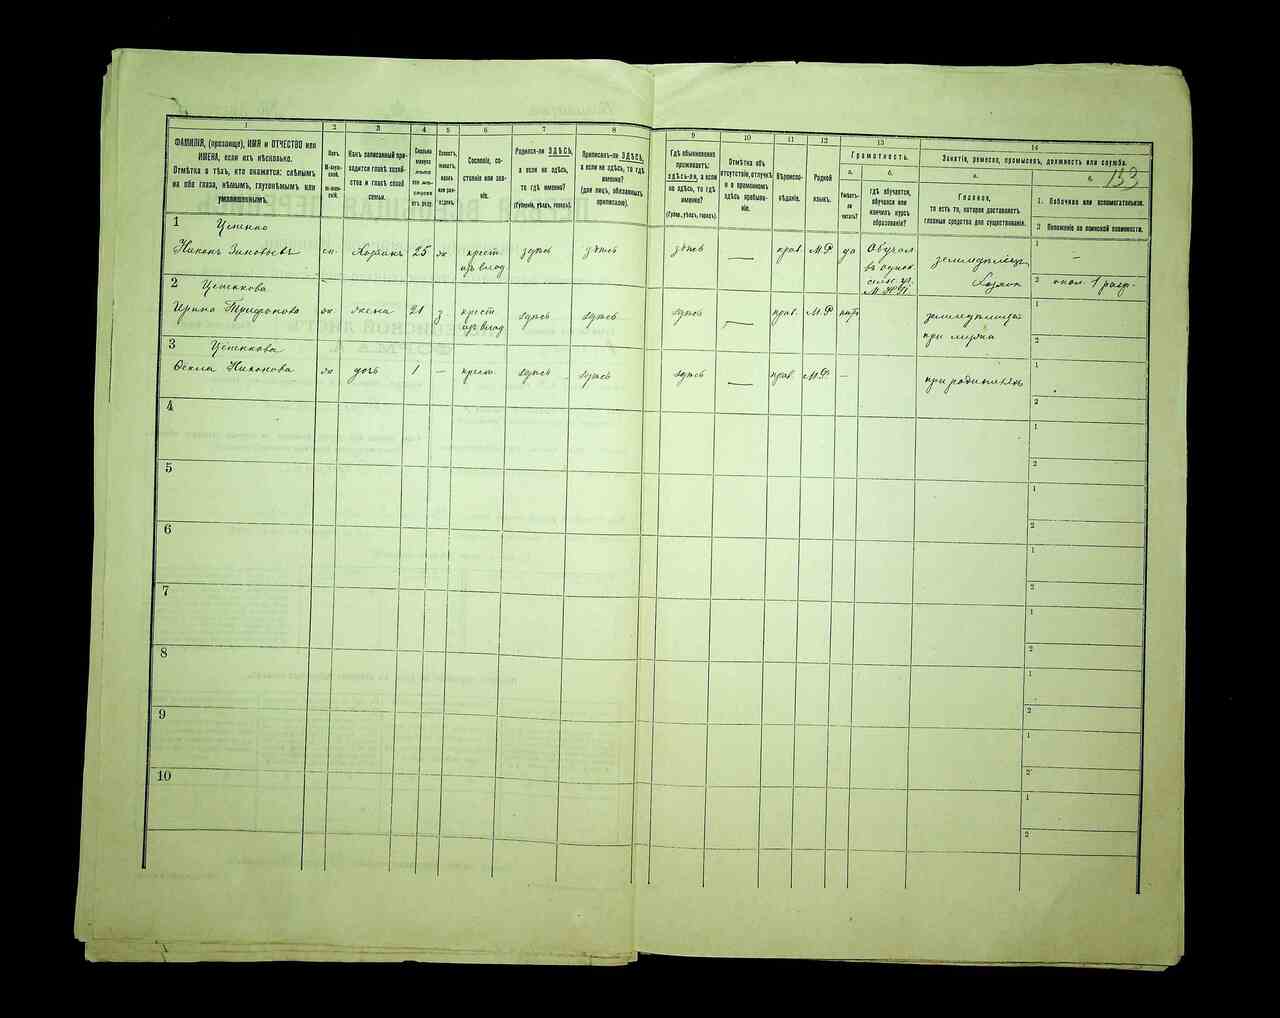 133
1 2 3 4 5 6 7 8 9 10 11 12 13 14
ФАМИЛІЯ, (прозвище), ИМЯ и ОТЧЕСТВО или
ИМЕНА, если ихъ нѣсколько.
Отмѣтка о тѣхъ, кто окажется: слѣпымъ
на оба глаза, нѣмымъ, глухонѣмымъ или
умалишеннымъ.
Полъ.
М-муж-
ской.
Ж-жен-
скій.
Какъ записанный при-
ходится главѣ хозяй-
ства и главѣ своей
семьи.
Сколько
минуло
лѣтъ
или мѣ-
сяцевъ
отъ роду.
Холостъ,
женатъ,
вдовъ
или раз-
веденъ.
Сословіе, со-
стояніе или зва-
ніе.
Родился-ли ЗДѢСЬ,
а если не здѣсь,
то гдѣ именно?
(Губернія, уѣздъ, городъ).
Приписанъ-ли ЗДѢСЬ,
а если не здѣсь, то гдѣ
именно?
(для лицъ, обязанныхъ
припискою).
Гдѣ обыкновенно
проживаетъ:
здѣсь-ли, а если
не здѣсь, то гдѣ
именно?
(Губерн., уѣздъ, городъ).
Отмѣтка объ
отсутствіи, отлучкѣ
и о временномъ
здѣсь пребыва-
ніи.
Вѣроиспо-
вѣданіе.
Родной
языкъ.
Грамотность.
а.
Умѣетъ-
ли
читать?
б.
гдѣ обучается,
обучался или
кончилъ курсъ
образованія?
Занятіе, ремесло, промыселъ, должность или служба.
а.
Главное,
то есть то, которое доставляетъ
главныя средства для существованія.
б.
1. Побочное или вспомогательное.
2 Положеніе по воинской повинности.
1 Цененко
Никонъ Зиновьевъ м. Хозяинъ 25 ж крест. здѣсь здѣсь здѣсь — прав. М.Р да Обучал. земледѣлецъ —
из влад. въ
Хозяин 2
2 Цененкова
Ирина Трифонова ж жена 21 з крест. здѣсь здѣсь здѣсь — прав. М.Р нѣтъ 1
из влад. при мужѣ 2
3 Цененкова
Никонова ж дочь 1 — крест. здѣсь здѣсь здѣсь — прав. М.Р. — при родителяхъ 1
2
4
1
2
5
1
2
6
1
2
7
1
2
8
1
2
9
1
2
10
1
2